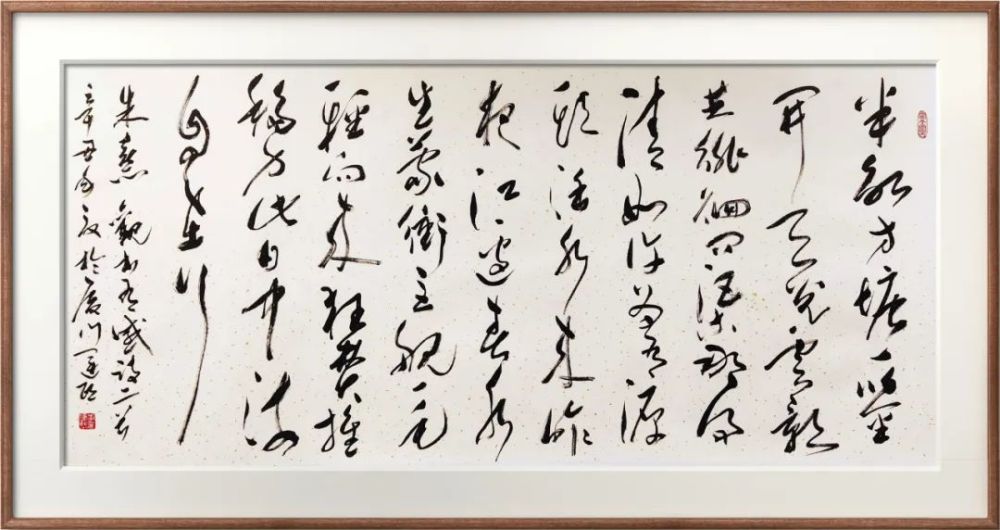 半畝方塘一鑒
開天光雲影
共徘徊問渠那得
清如許為有源
頭活水來昨
夜江邊春水
生蒙衝巨艦一毛
輕向來枉費推
移力此日中流
自在行
朱熹觀書有感詩二首
辛丑於廈門